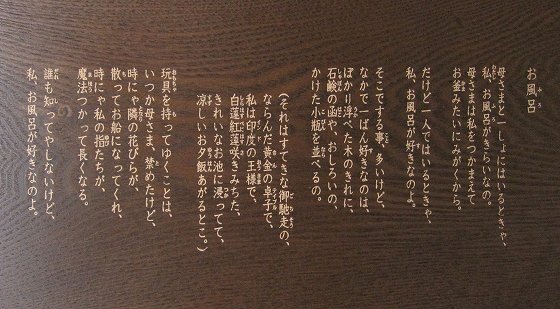 お風呂
母さまと一しょにはいるときゃ、
私、お風呂がきらいなの。
母さまは私をつかまえて
お釜みたいにみがくから。
だけど一人ではいるときゃ、
私、お風呂が好きなのよ。
そこでする事、多いけど、
なかで一ばん好きなのは、
ぽかり浮べた木のきれに、
石鹸の函や、おしろいの、
かけた小瓶を並べるの。
(それはすてきな御馳走の、
ならんだ黄金の卓子で、
私は印度の王様で、
白蓮紅蓮咲きみちた、
きれいなお池に浸ってて、
涼しいお夕飯あがるとこ。)
玩具を持ってゆくことは、
いつか母さま、禁めたけど、
時にゃ隣の花びらが、
散ってお船になってくれ、
時にゃ私の指たちが、
魔法つかって長くなる。
誰も知ってやしないけど、
私、お風呂が好きなのよ。